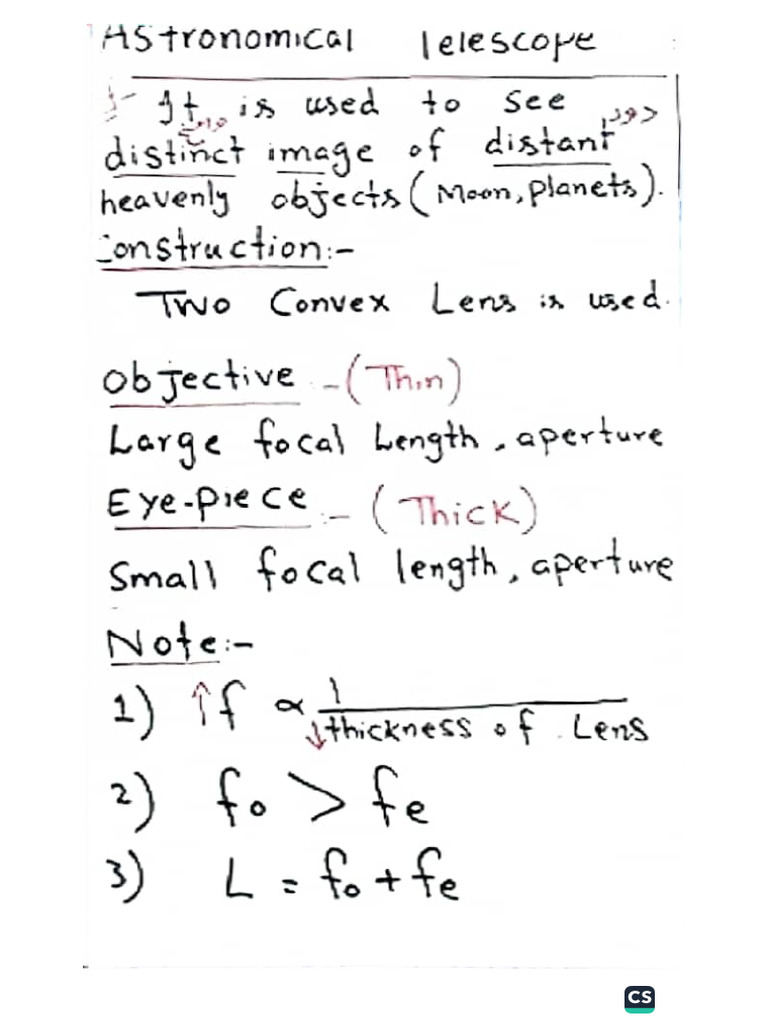 Astronomical Telescope
It is used to see
دور
distinct image of distant
heavenly objects (Moon, planets).
Construction:-
Two Convex Lens is used.
Objective :- (Thin)
Large focal Length, aperture
Eye-piece :- (Thick)
Small focal length, aperture
Note:-
1) ↑f ∝ 1
↓thickness of Lens
2) fo > fe
3) L = fo + fe
CS